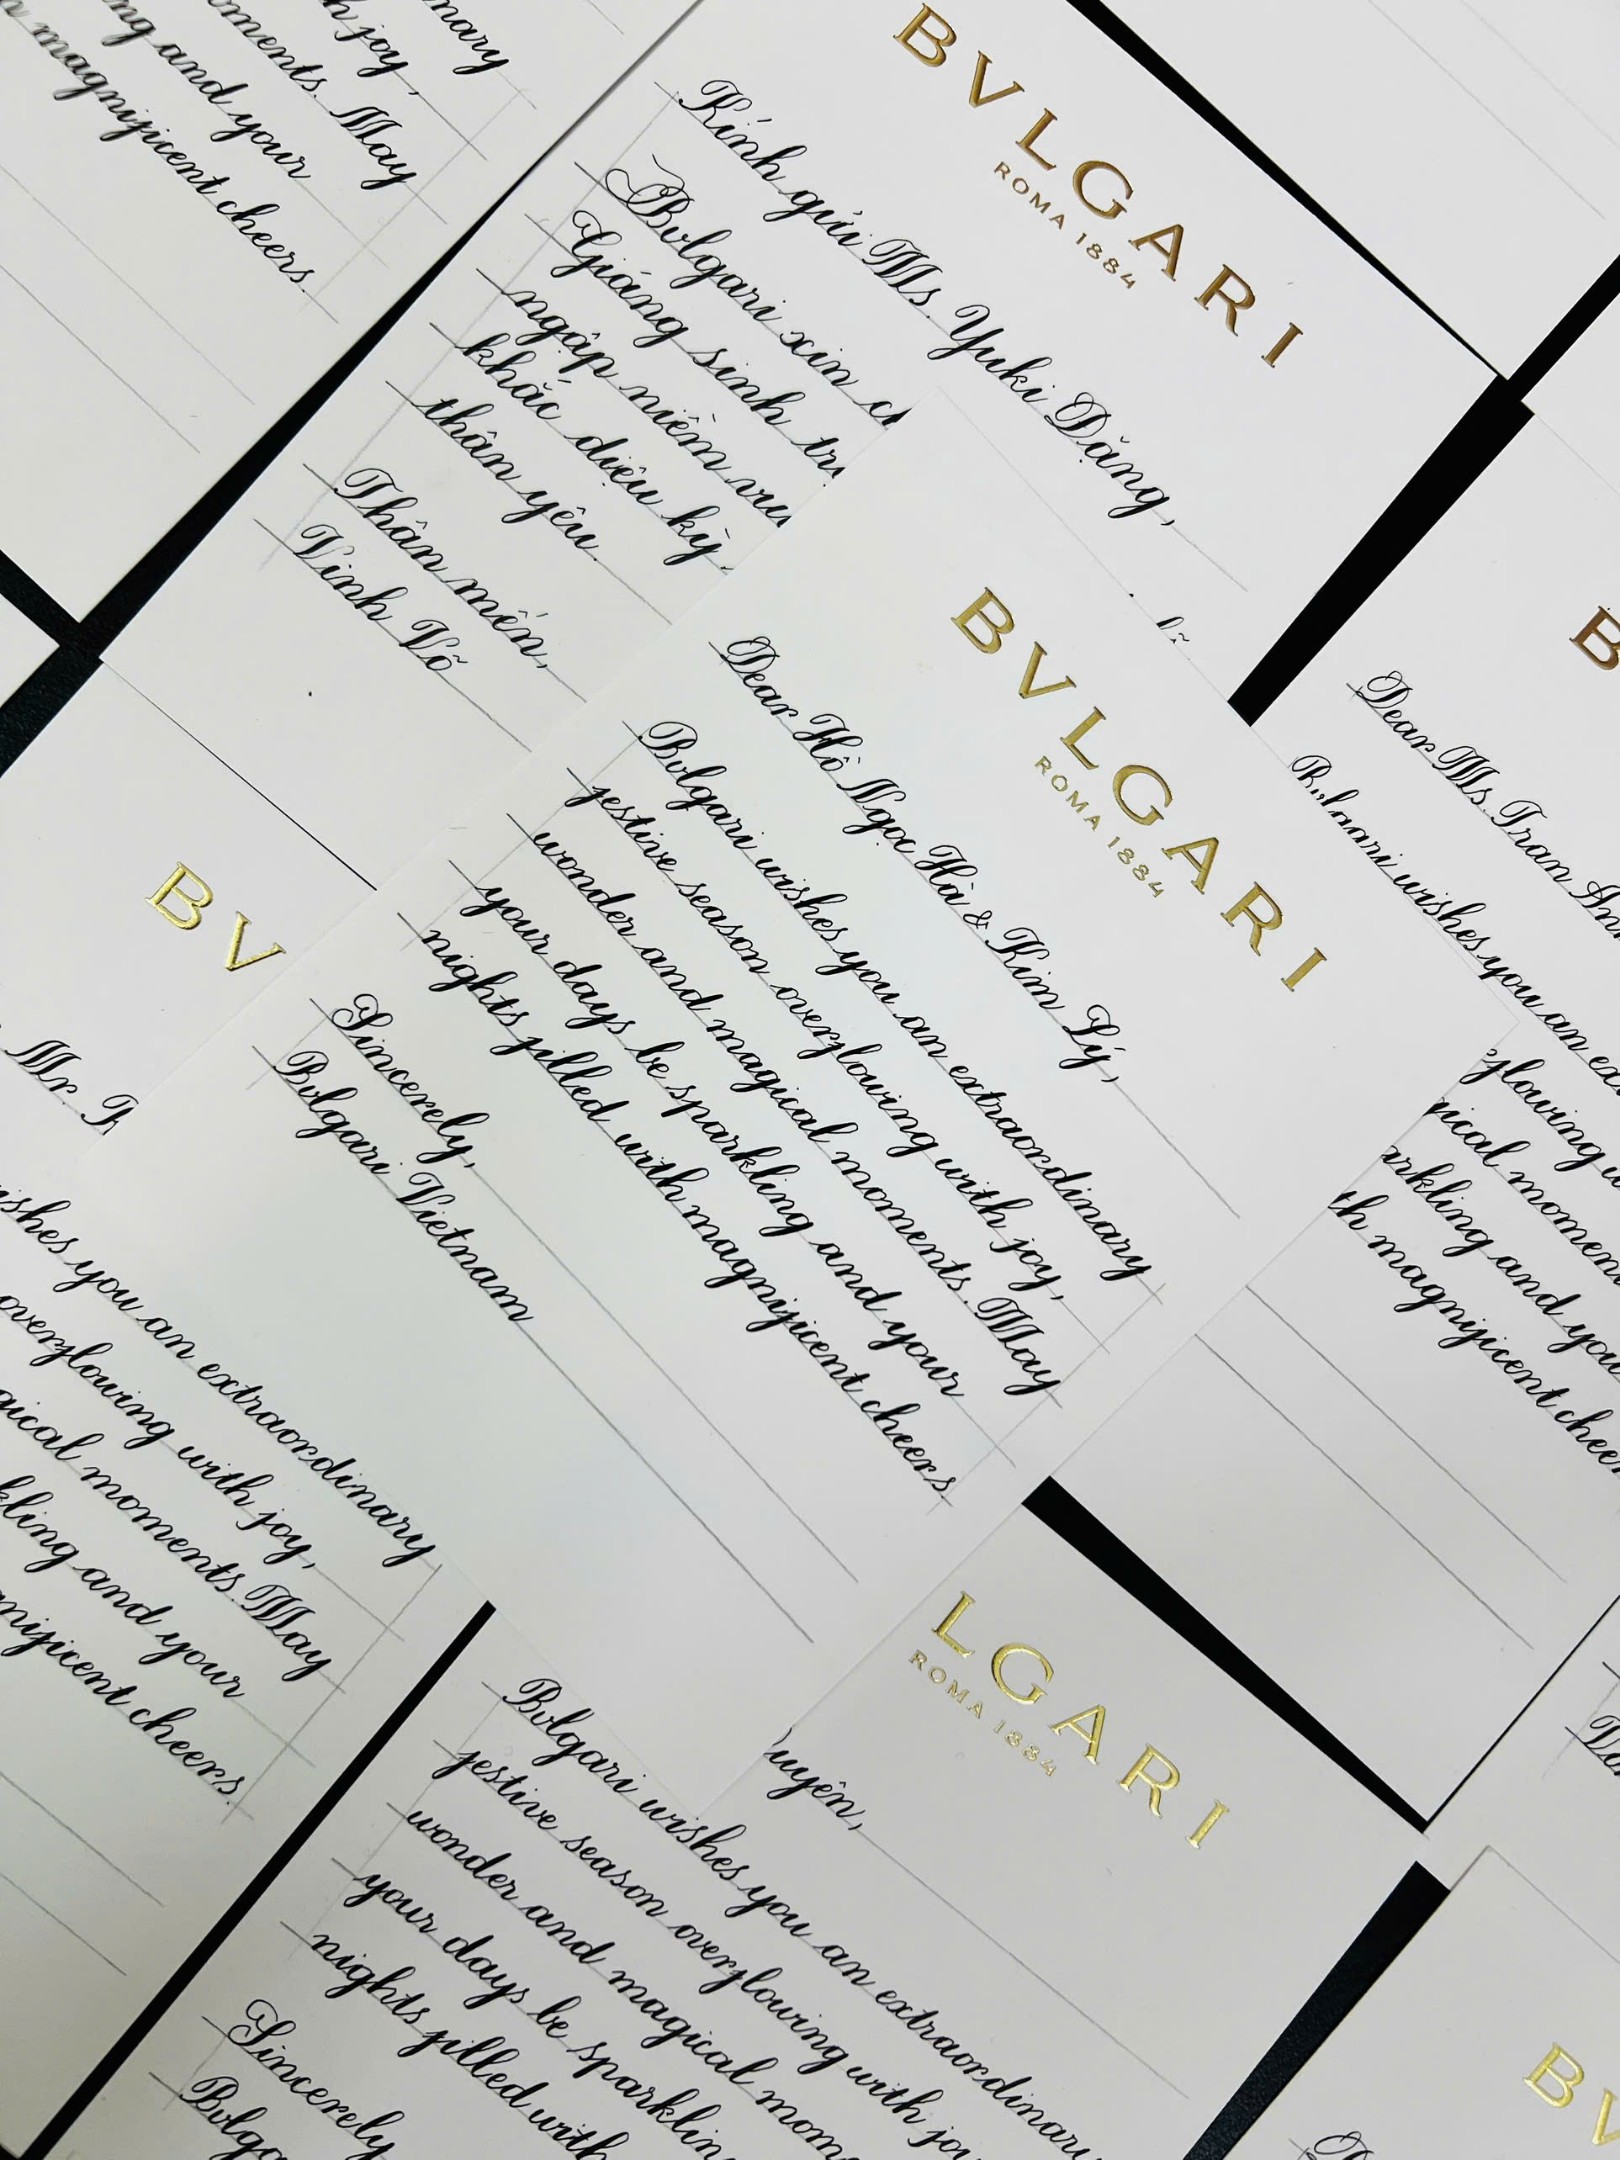 nary
h joy,
oments. May
ng and your
magnificent cheers.
BVLGARI
ROMA 1884
Kính gửi Ms. Yuki Đặng,
Bvlgari xin
Giáng sinh
ngập niềm
khắc diệu kỳ
thân yêu.
Thân mến,
Vinh Võ
BVLGARI
ROMA 1884
Dear Hồ Ngọc Hà & Kim Lý,
Bvlgari wishes you an extraordinary
festive season overflowing with joy,
wonder and magical moments. May
your days be sparkling and your
nights filled with magnificent cheers.
Sincerely,
Bvlgari Vietnam
B
Dear Ms. Tran
Bvlgari wishes you an
flowing
ical
arkling and
th magnificent
BV
Mr.
shes you an extraordinary
overflowing with joy,
gical moments. May
kling and your
nificent cheers.
LGARI
ROMA 1884
uyên,
Bvlgari wishes you an extraordinary
festive season overflowing with
wonder and magical
your days be
nights filled with
Sincerely
BV